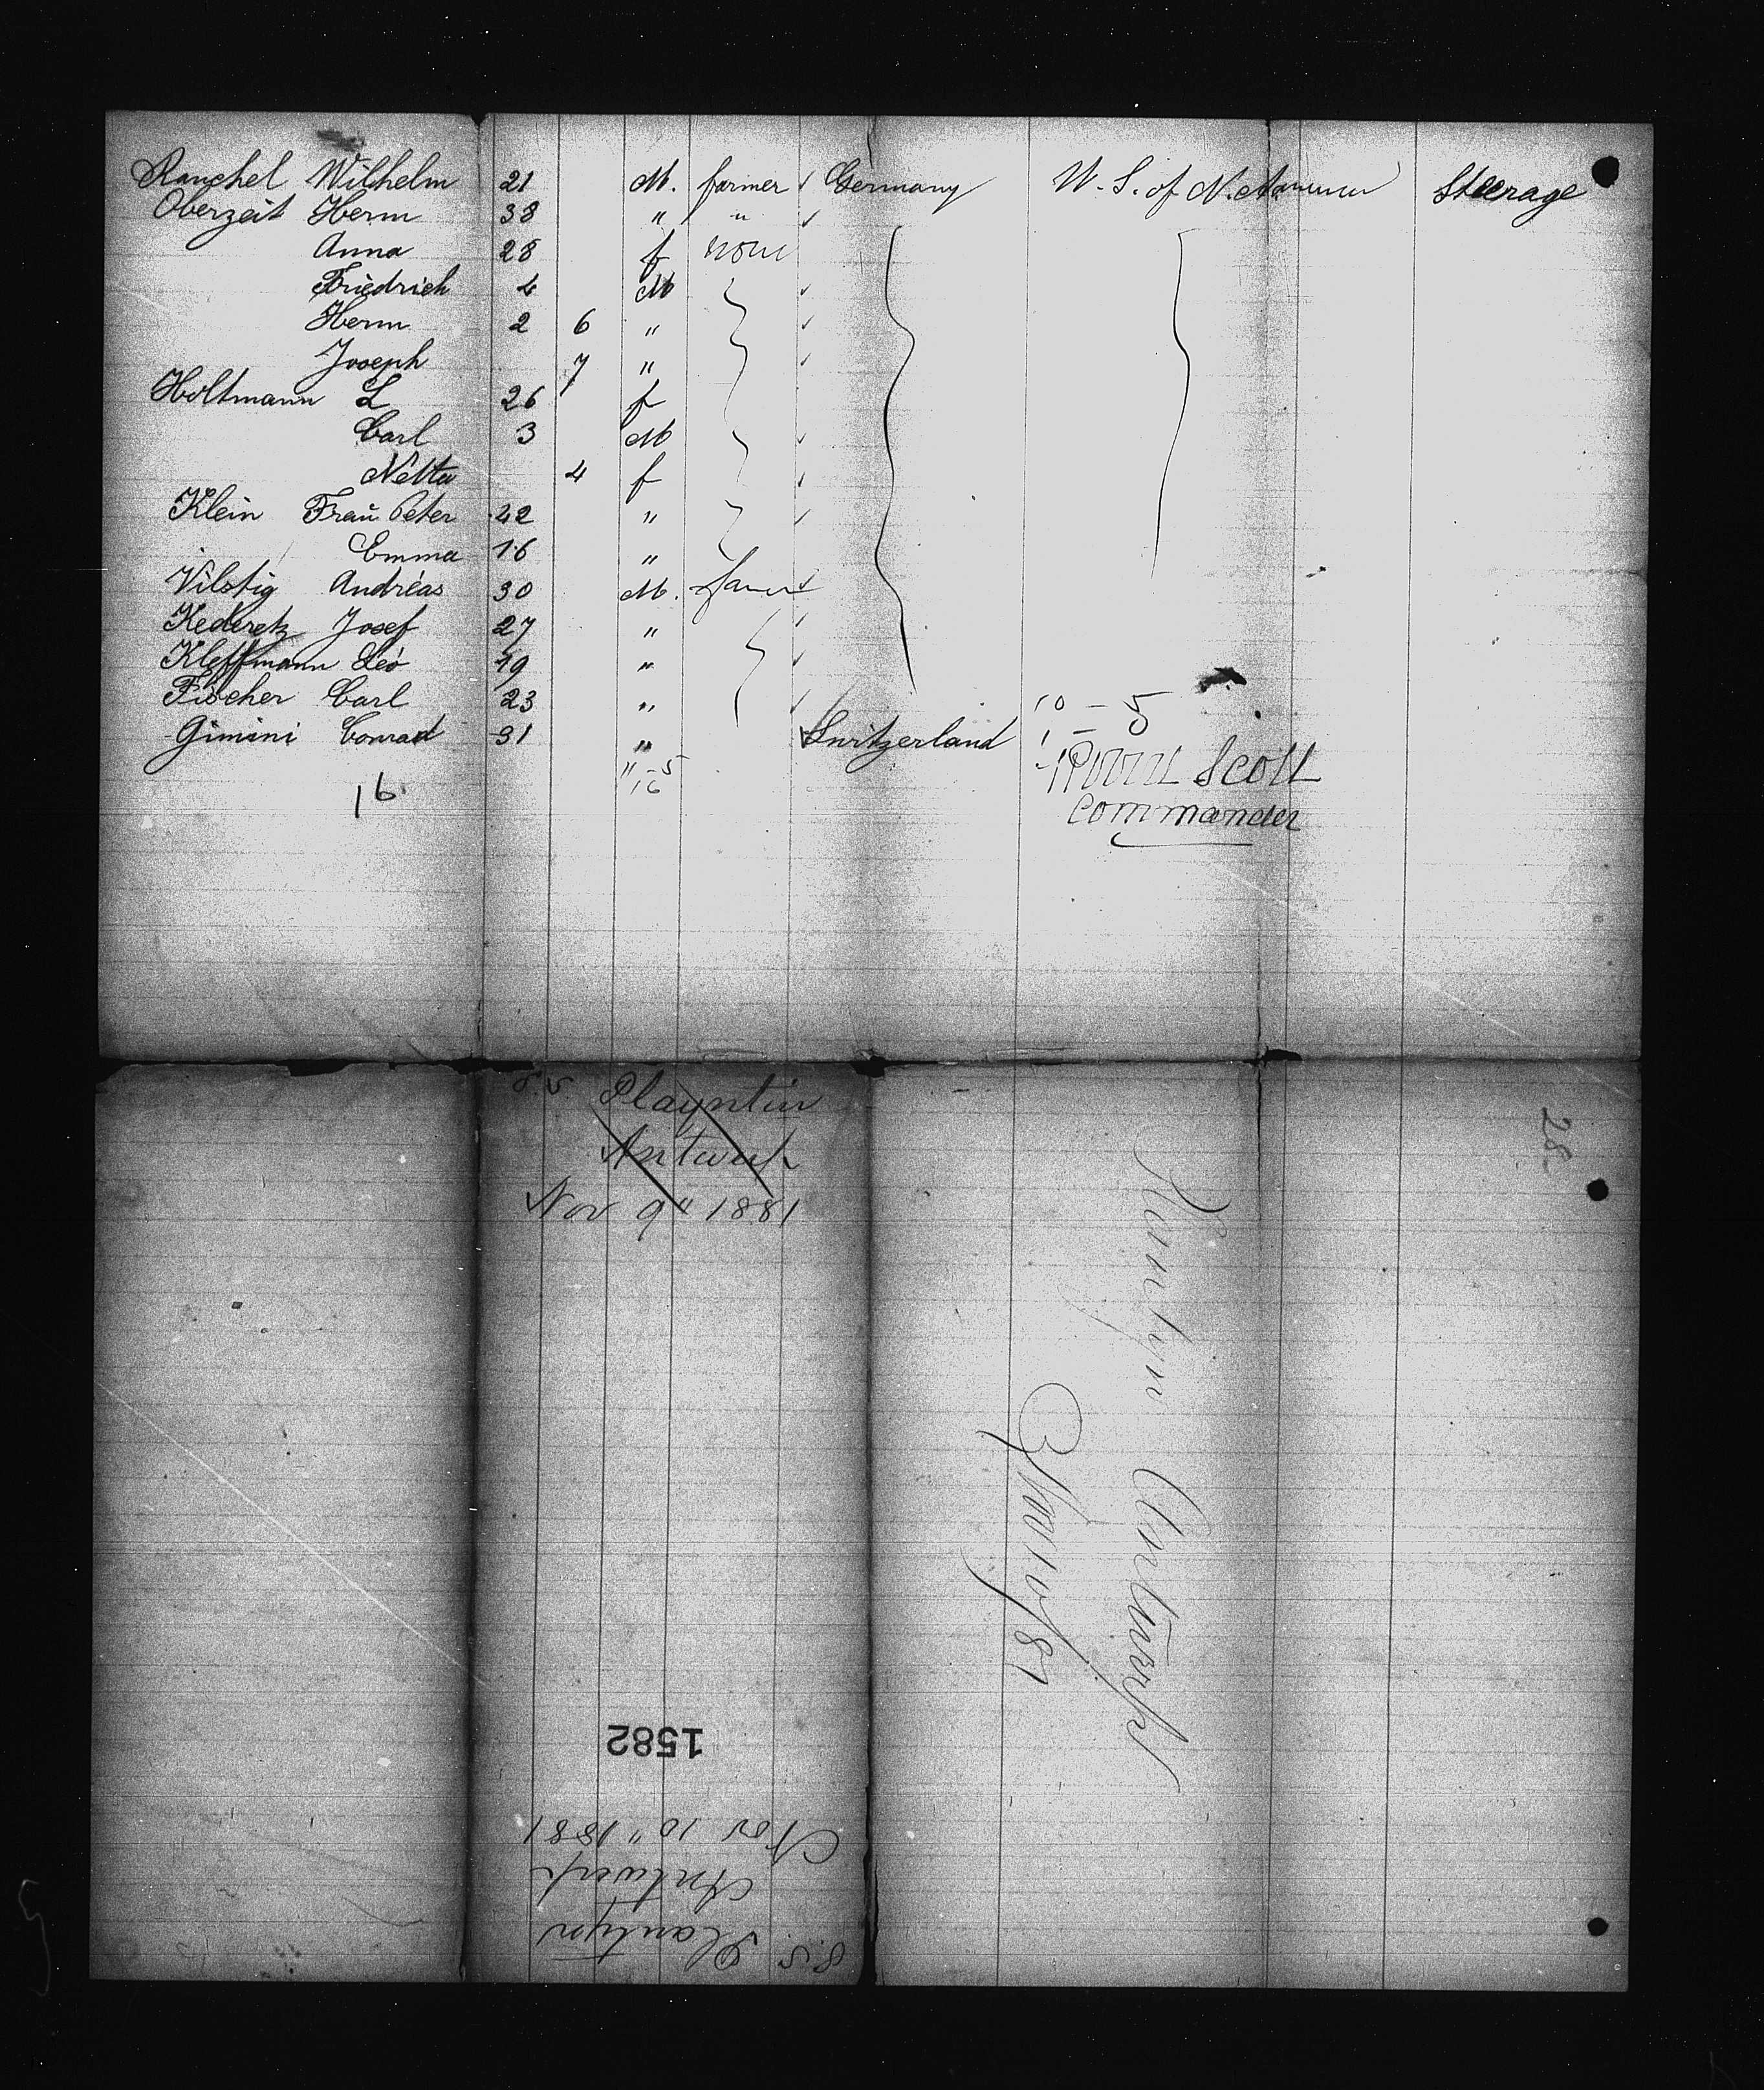 Rauchel Wilhelm 21 M. farmer Germany U. S. of N. America Steerage
Oberzeit Herm 38 " "
Anna 28 f none
Friedrich 4 M
Herm 2 6 "
Joseph 7 "
Holtmann L 26 f
Carl 3 M
Netta 4 f
Klein Frau Peter 42 "
Emma 16 "
Vilstig Andréas 30 M. farmer
Kederetz Josef 27 "
Kleffmann Leo 19 "
Fischer Carl 23 " 10 - 5
Gimini Conrad 31 " Switzerland 1 - 0
11 - 5
16
16
Scott
Commander
S.S. Playntin
Antwerp
Nov 9" 1881
28
Plantyn Antwerp
Nov 10/81
1582
S.S. Plantyn
Antwerp
Nov 10" 1881